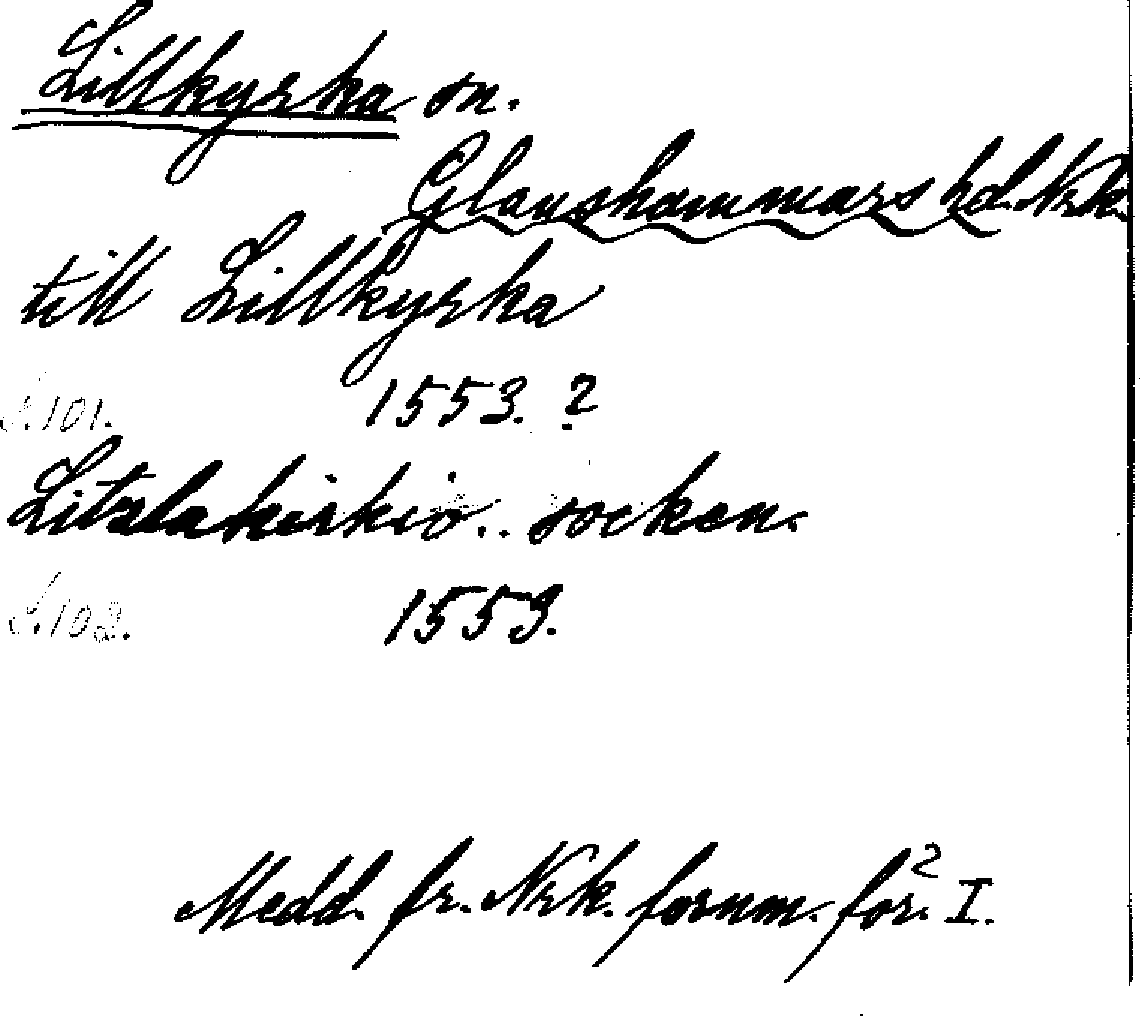 Lillkyrka sn.
Glanshammars hd. Nrk.
till Lillkyrka
S. 101. 1553. ?
Litzlakirkio.. socken.
S. 102. 1559.
Medd. fr. Nrk. fornm. för. 2 I.